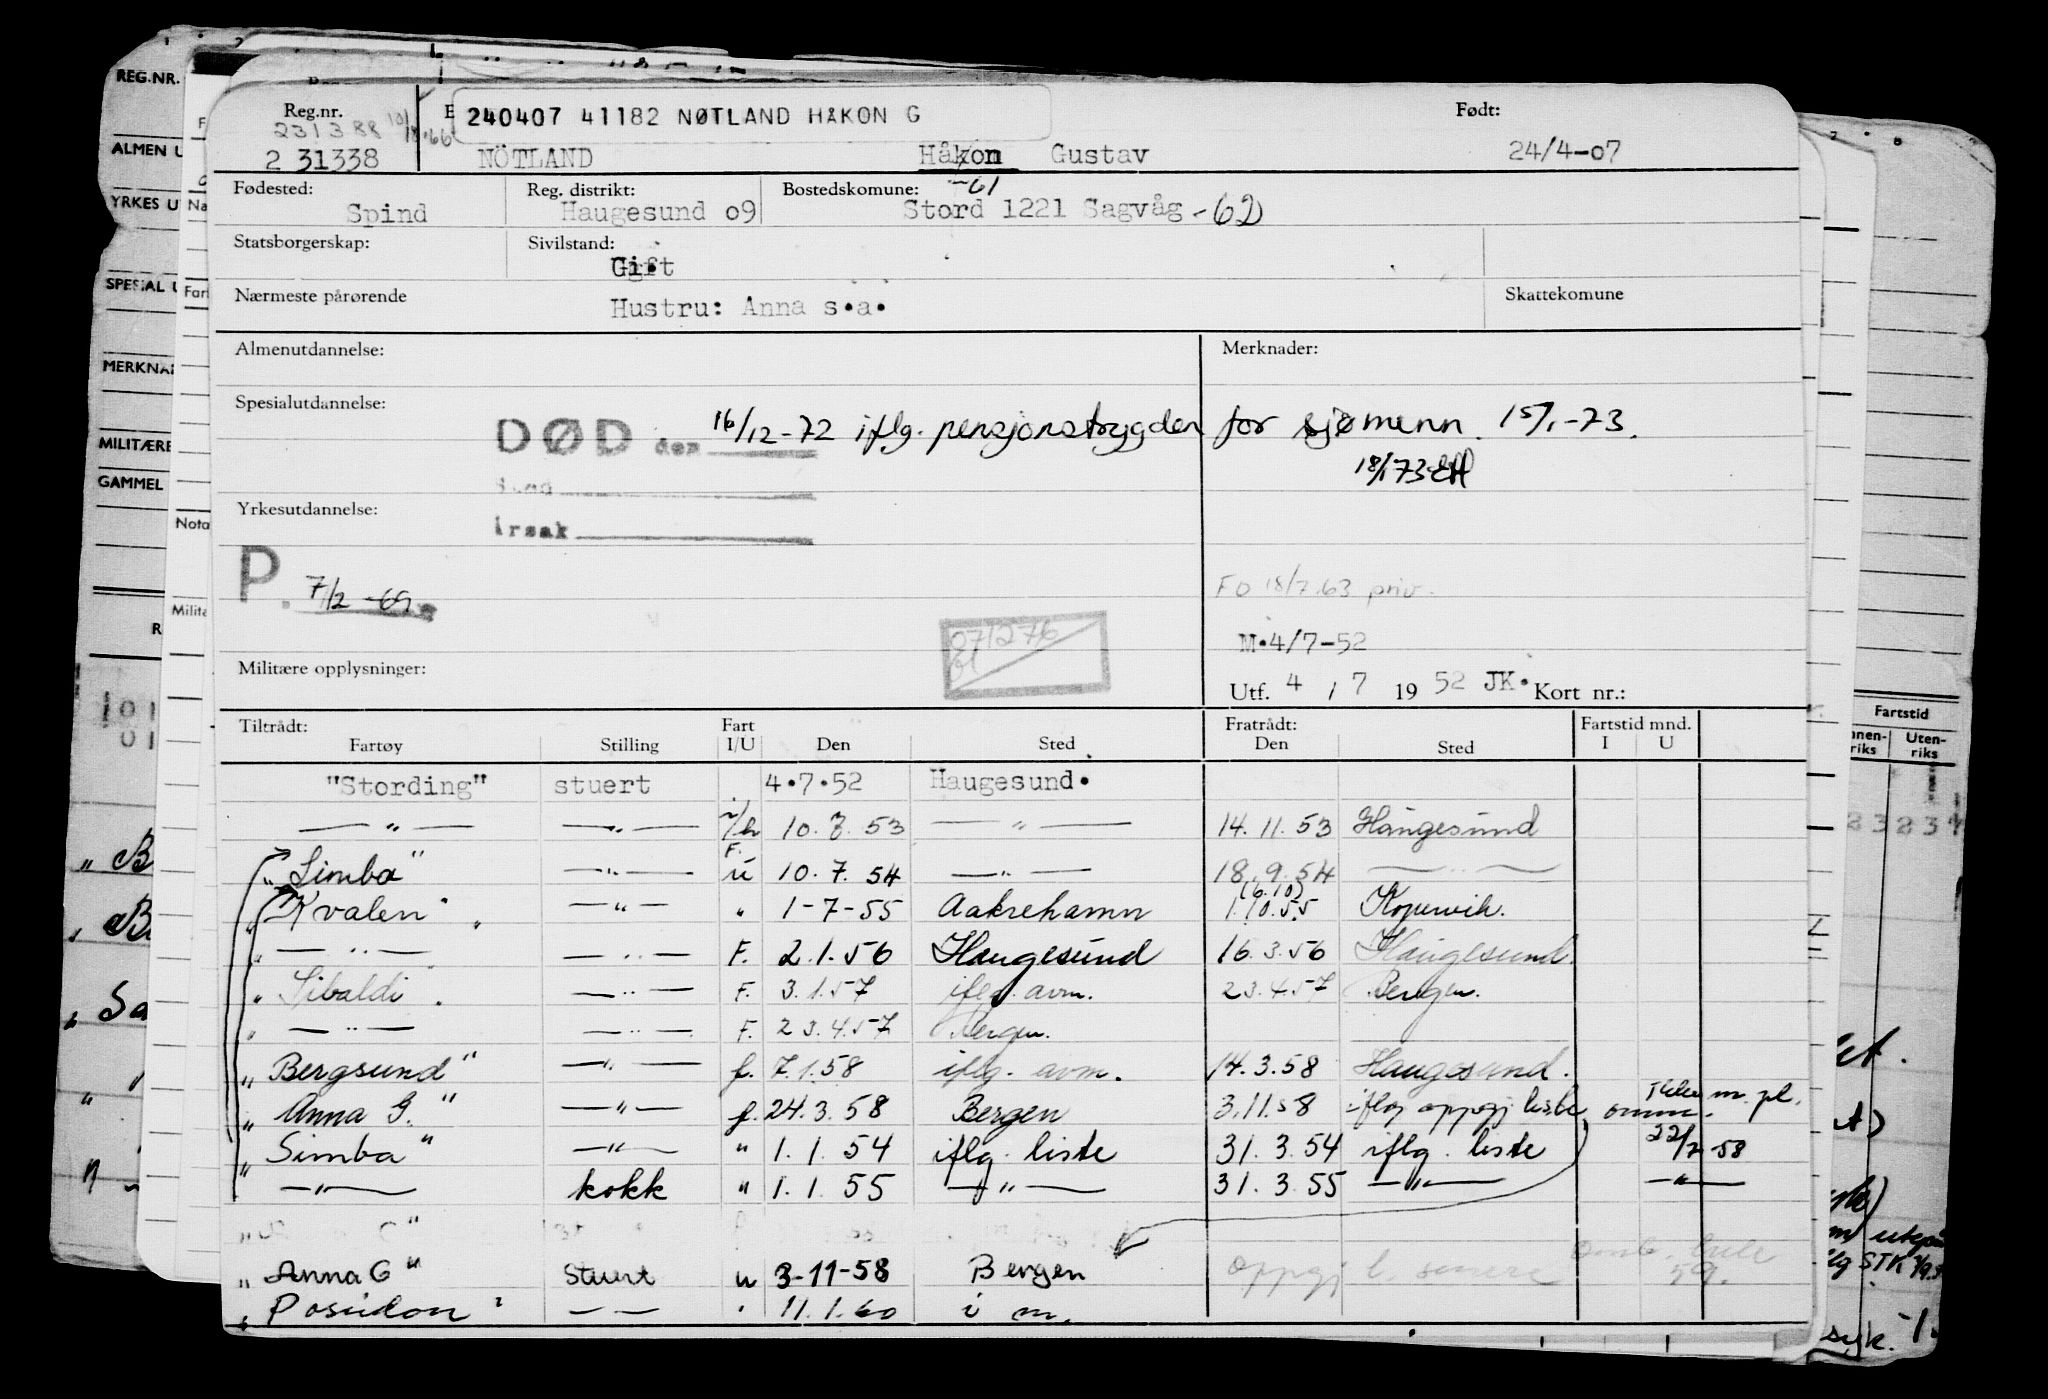 REG.NR.
ALMEN U
YRKES U
SPESIAL U
MERKNA
MILITÆRE
GAMMEL
Nota
Reg.nr. 240407 41182 NØTLAND HÅKON G Født:
231388 10/8.66
2 31338 NÖTLAND Håkon Gustav 24/4-07
Fødested: Reg. distrikt: Bostedskomune: -61
Spind Haugesund 09 Stord 1221 Sagvåg -62
Statsborgerskap: Sivilstand:
Gift
Nærmeste pårørende Skattekomune
Hustru: Anna s.a.
Almenutdannelse: Merknader:
Spesialutdannelse:
DØD den 16/12-72 iflg. pensjonstrygden for sjømenn. 15/1-73.
18/1 73 EH
Yrkesutdannelse:
Årsak
P. 7/2 -69
FO 18/7.63 priv.
071276
M.4/7-52
Militære opplysninger:
Utf. 4 / 7 19 52 JK. Kort nr.:
Tiltrådt: Fart Fratrådt: Fartstid mnd.
Fartøy Stilling I/U Den Sted Den Sted I U
"Stording" stuert 4.7.52 Haugesund.
— " — — " — 10.7.53 — " — 14.11.53 Haugesund
F.
"Simba" — " — u 10.7.54 — " — 18.9.54 — " —
(6.10)
"Kvalen" — " — " 1-7-55 Aakrehamn 1.10.55 Kopervik.
" — " — — " — F. 2.1.56 Haugesund 16.3.56 Haugesund.
" Sibaldi. — " — F. 3.1.57 iflg. avm. 23.4.57 Bergen.
" — " — — " — F. 23.4.57 Bergen.
"Bergsund" — " — f. 7.1.58 iflg. avm. 14.3.58 Haugesund.
"Anna G." — " — f. 24.3.58 Bergen 3.11.58 iflg oppgj liste m. pl.
"Simba" — " — " 1.1.54 iflg. liste 31.3.54 iflg. liste 22/7 58
" — " — kokk " 1.1.55 — " — 31.3.55 — " — — " —
"Anna G" Stuert u 3-11-58 Bergen oppgj l. senere 59.
"Poseidon" — — " 11.1.60 i m.
Fartstid
Innenriks Utenriks